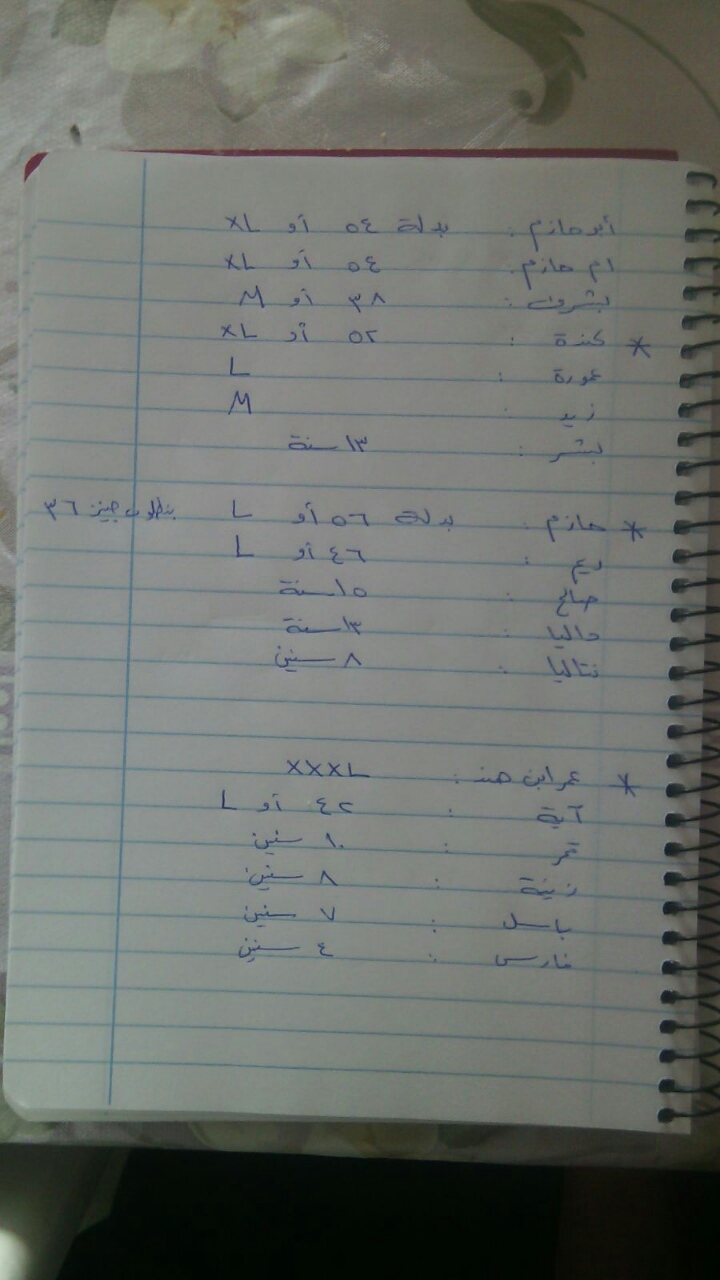 أبو حازم : بدلة ٥٤ أو XL
ام حازم : ٥٤ أو XL
بشرون : ٣٨ أو M
* كندة : ٥٢ أو XL
عورة : L
زيد : M
بشر : ١٣ سنة
* حازم : بدلة ٥٦ أو L بنطلون جينز ٣٦
ريم : ٤٦ أو L
صالح : ١٥ سنة
داليا : ١٣ سنة
نتاليا : ٨ سنين
* عمر ابن هند : XXXL
آية : ٤٢ أو L
قمر : ١٠ سنين
زينة : ٨ سنين
باسل : ٧ سنين
فارس : ٤ سنين